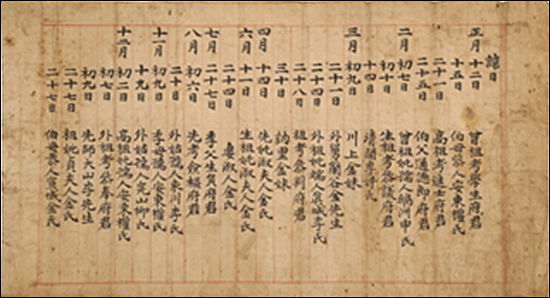 諱日
正月十二日 曾祖考學生府君
十五日 伯母恭人安東權氏
二十一日 高祖考進士府君
二十五日 伯父通德郎府君
二月初七日 曾祖妣孺人鵝洲申氏
初十日 生祖考參議府君
十四日
三月初九日 川上金妹
二十一日 外舅蘭谷金先生
二十四日 外祖妣端人宣城李氏
二十八日 祖考參判府君
三十日 訥里金妹
四月十四日 先妣淑夫人金氏
六月十一日 生祖妣淑夫人金氏
二十四日 妻淑人金氏
七月二十七日 季父生員府君
八月初六日 先考僉樞府君
二十日 外姑孺人東川李氏
十一月初九日 季母孺人安東權氏
十九日 外姑孺人完山柳氏
十二月初二日 高祖妣孺人安東權氏
初七日 外祖考參奉府君
初九日 先師大山李先生
二十七日 祖妣貞夫人金氏
二十七日 伯母恭人宣城金氏